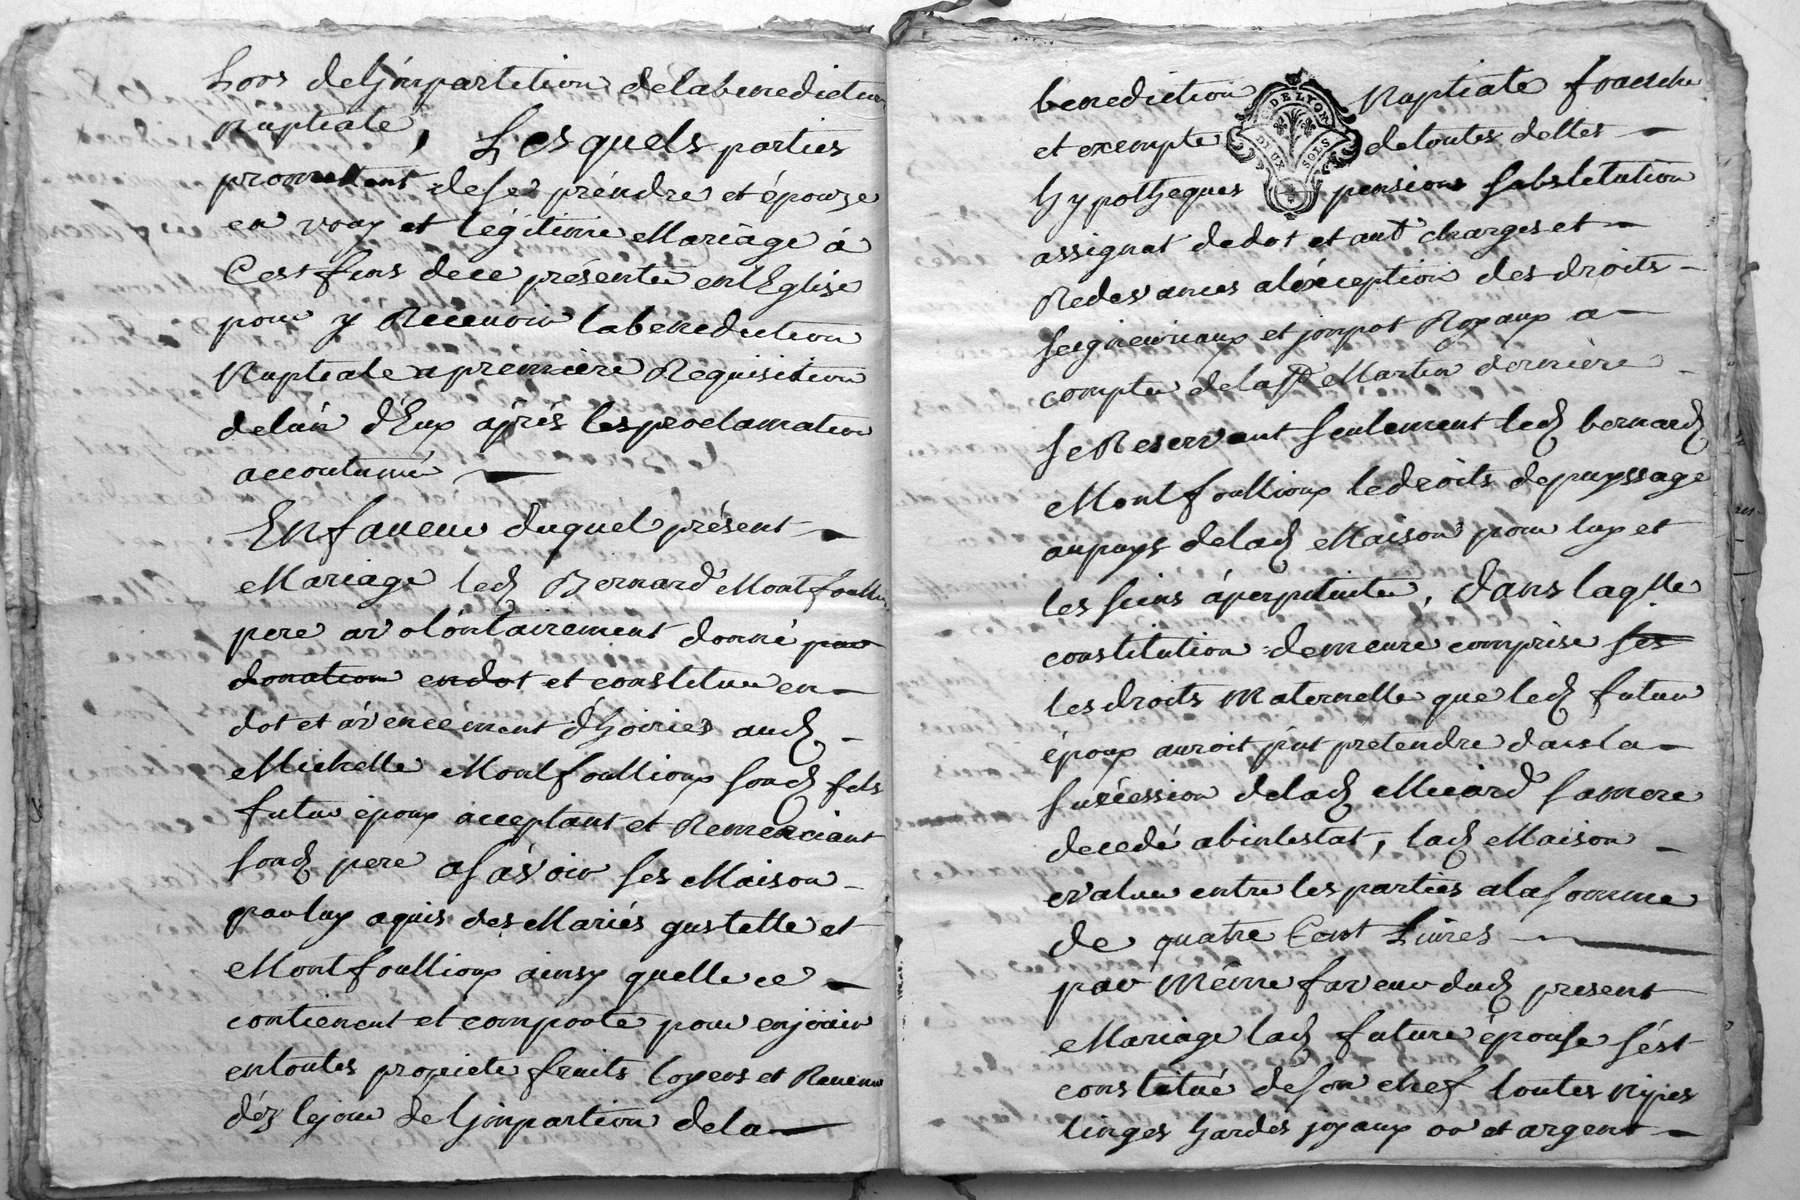 Lors de l'jmpartition de la benediction
Nuptiale, Lesquels parties
promettent de se préndre et épouze
en vray et légitime Mariâge á
Cest fins de ce présenter en l'Eglise
pour y Recevoir la benediction
Nuptiale a premiére Requisition
de lun d'Eux aprés les proclamation
accoutumé
En faveur duquel présent
Mariage led Bernard Montfoullioux
pere a volontairement donné par
donation en dot et constitue en
dot et avencément d'hoiries aud
Michelle Montfoullioux sond fils
futur époux acceptant et Remerciant
sond pere a savoir ses Maison
par luy aquis des Mariés gustelle et
Montfoullioux ainsy quelle ce
contienent et comporte pour en jouir
en toutes propriete fruits loyers et Revenu
déz le jour de l'jmpartion de la
bénediction Nuptiale franche
DE LYON
DEUX SOLS
et exempte de toutes dettes
hypotheques pensions substitution
assignat de dot et autt charges et
Redevances a léxception des droits
seigneuriaux et jmpot Royaux a
compter de la st Martin derniére
se Reservant seulement led bernard
Montfoullioux le droits de puyssage
au puys de lad Maison pour luy et
les siens á perpetuite, dans laqlle
constitution demeure comprise ses
les droits Maternelle que led futur
époux auroit put pretendre dans la
succéssion de lad Miard sa mere
decedé abintestat, lad Maison
evaluée entre les parties a la somme
de quatre Cent Livres
par Méme faveur dud present
Mariage lad future épouse s'ést
constitué de son chef toutes Nipes
linges hardés joyaux or et argent